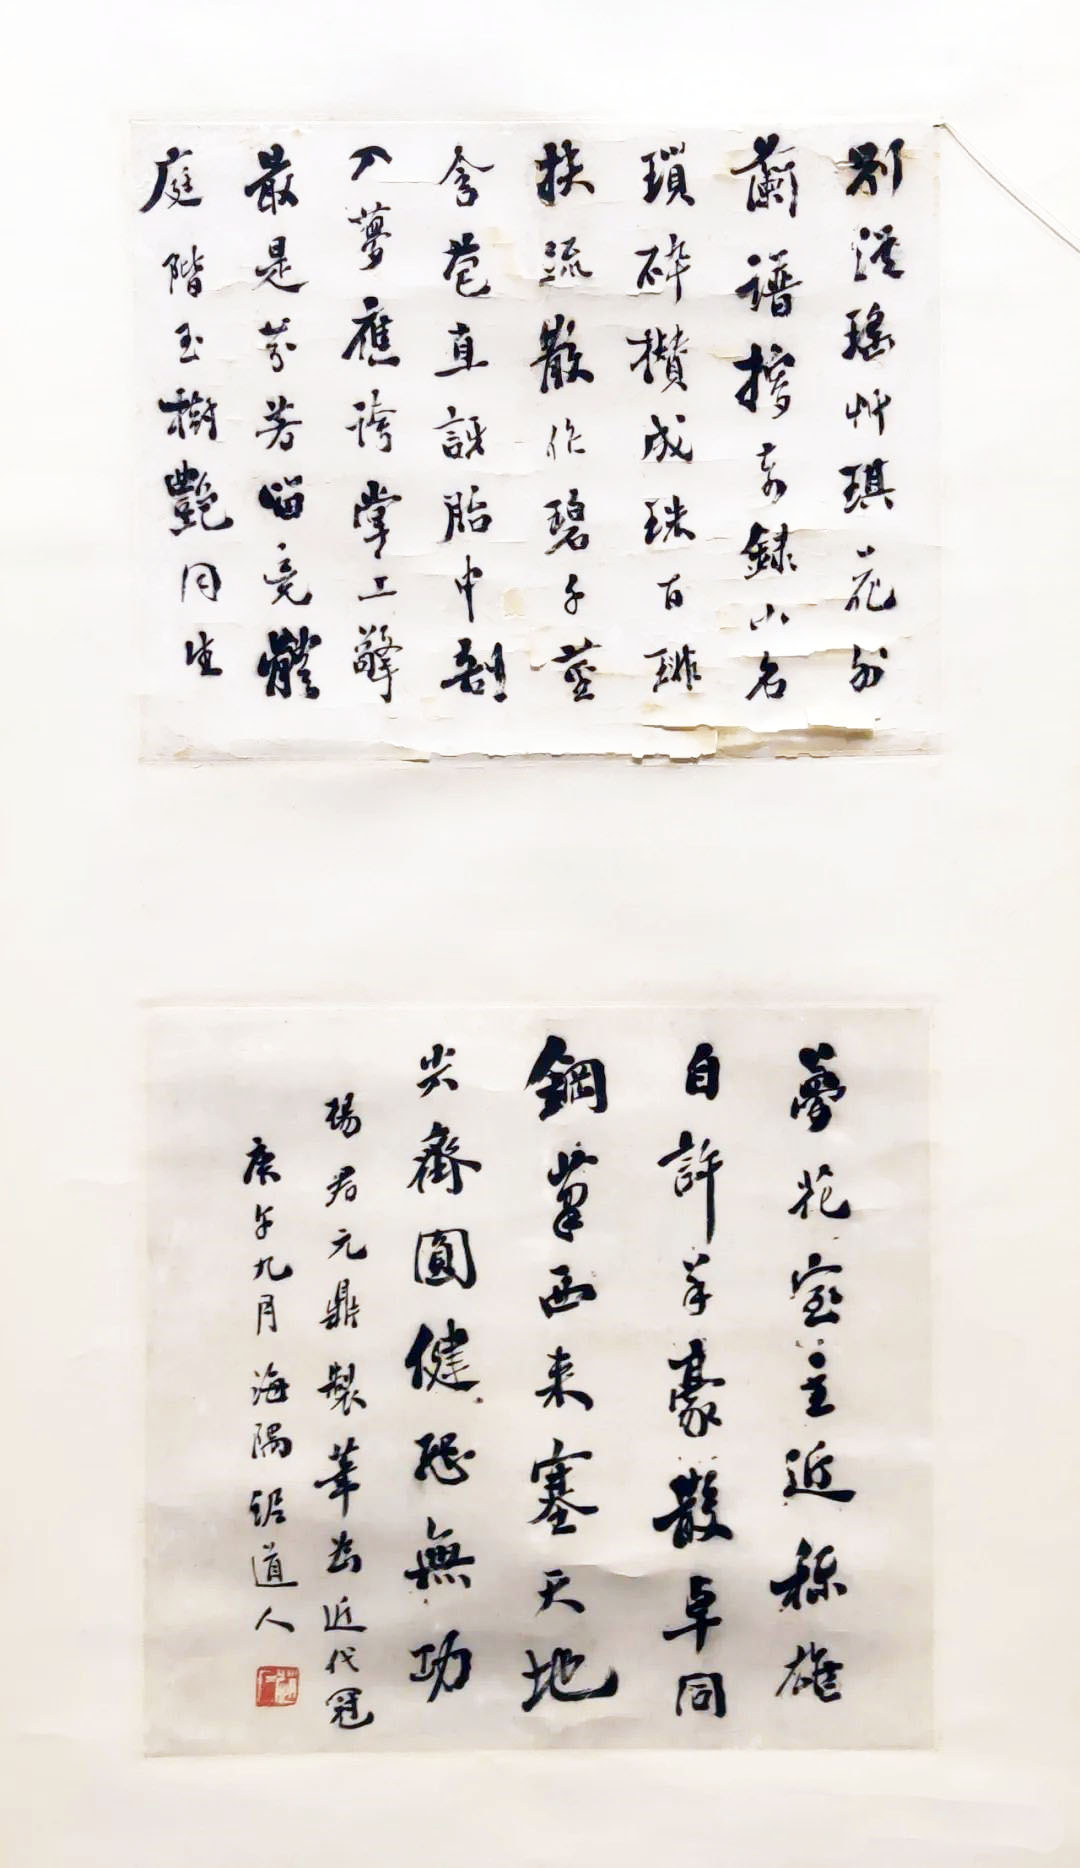 別浸瑤艸琪花外
蘭譜揞摹錄小名
瑣碎攢成珠百琲
扶疏散作碧千莖
含苞直訝胎中剖
入夢應誇掌上擎
最是芬芳留竟體
庭階玉樹豔同生
夢花室主近稱雄
自許羊豪散卓同
鋼筆西来塞天地
尖齊圓健恐無功
楊君元鼎製筆為近代冠
庚午九月海隅道人